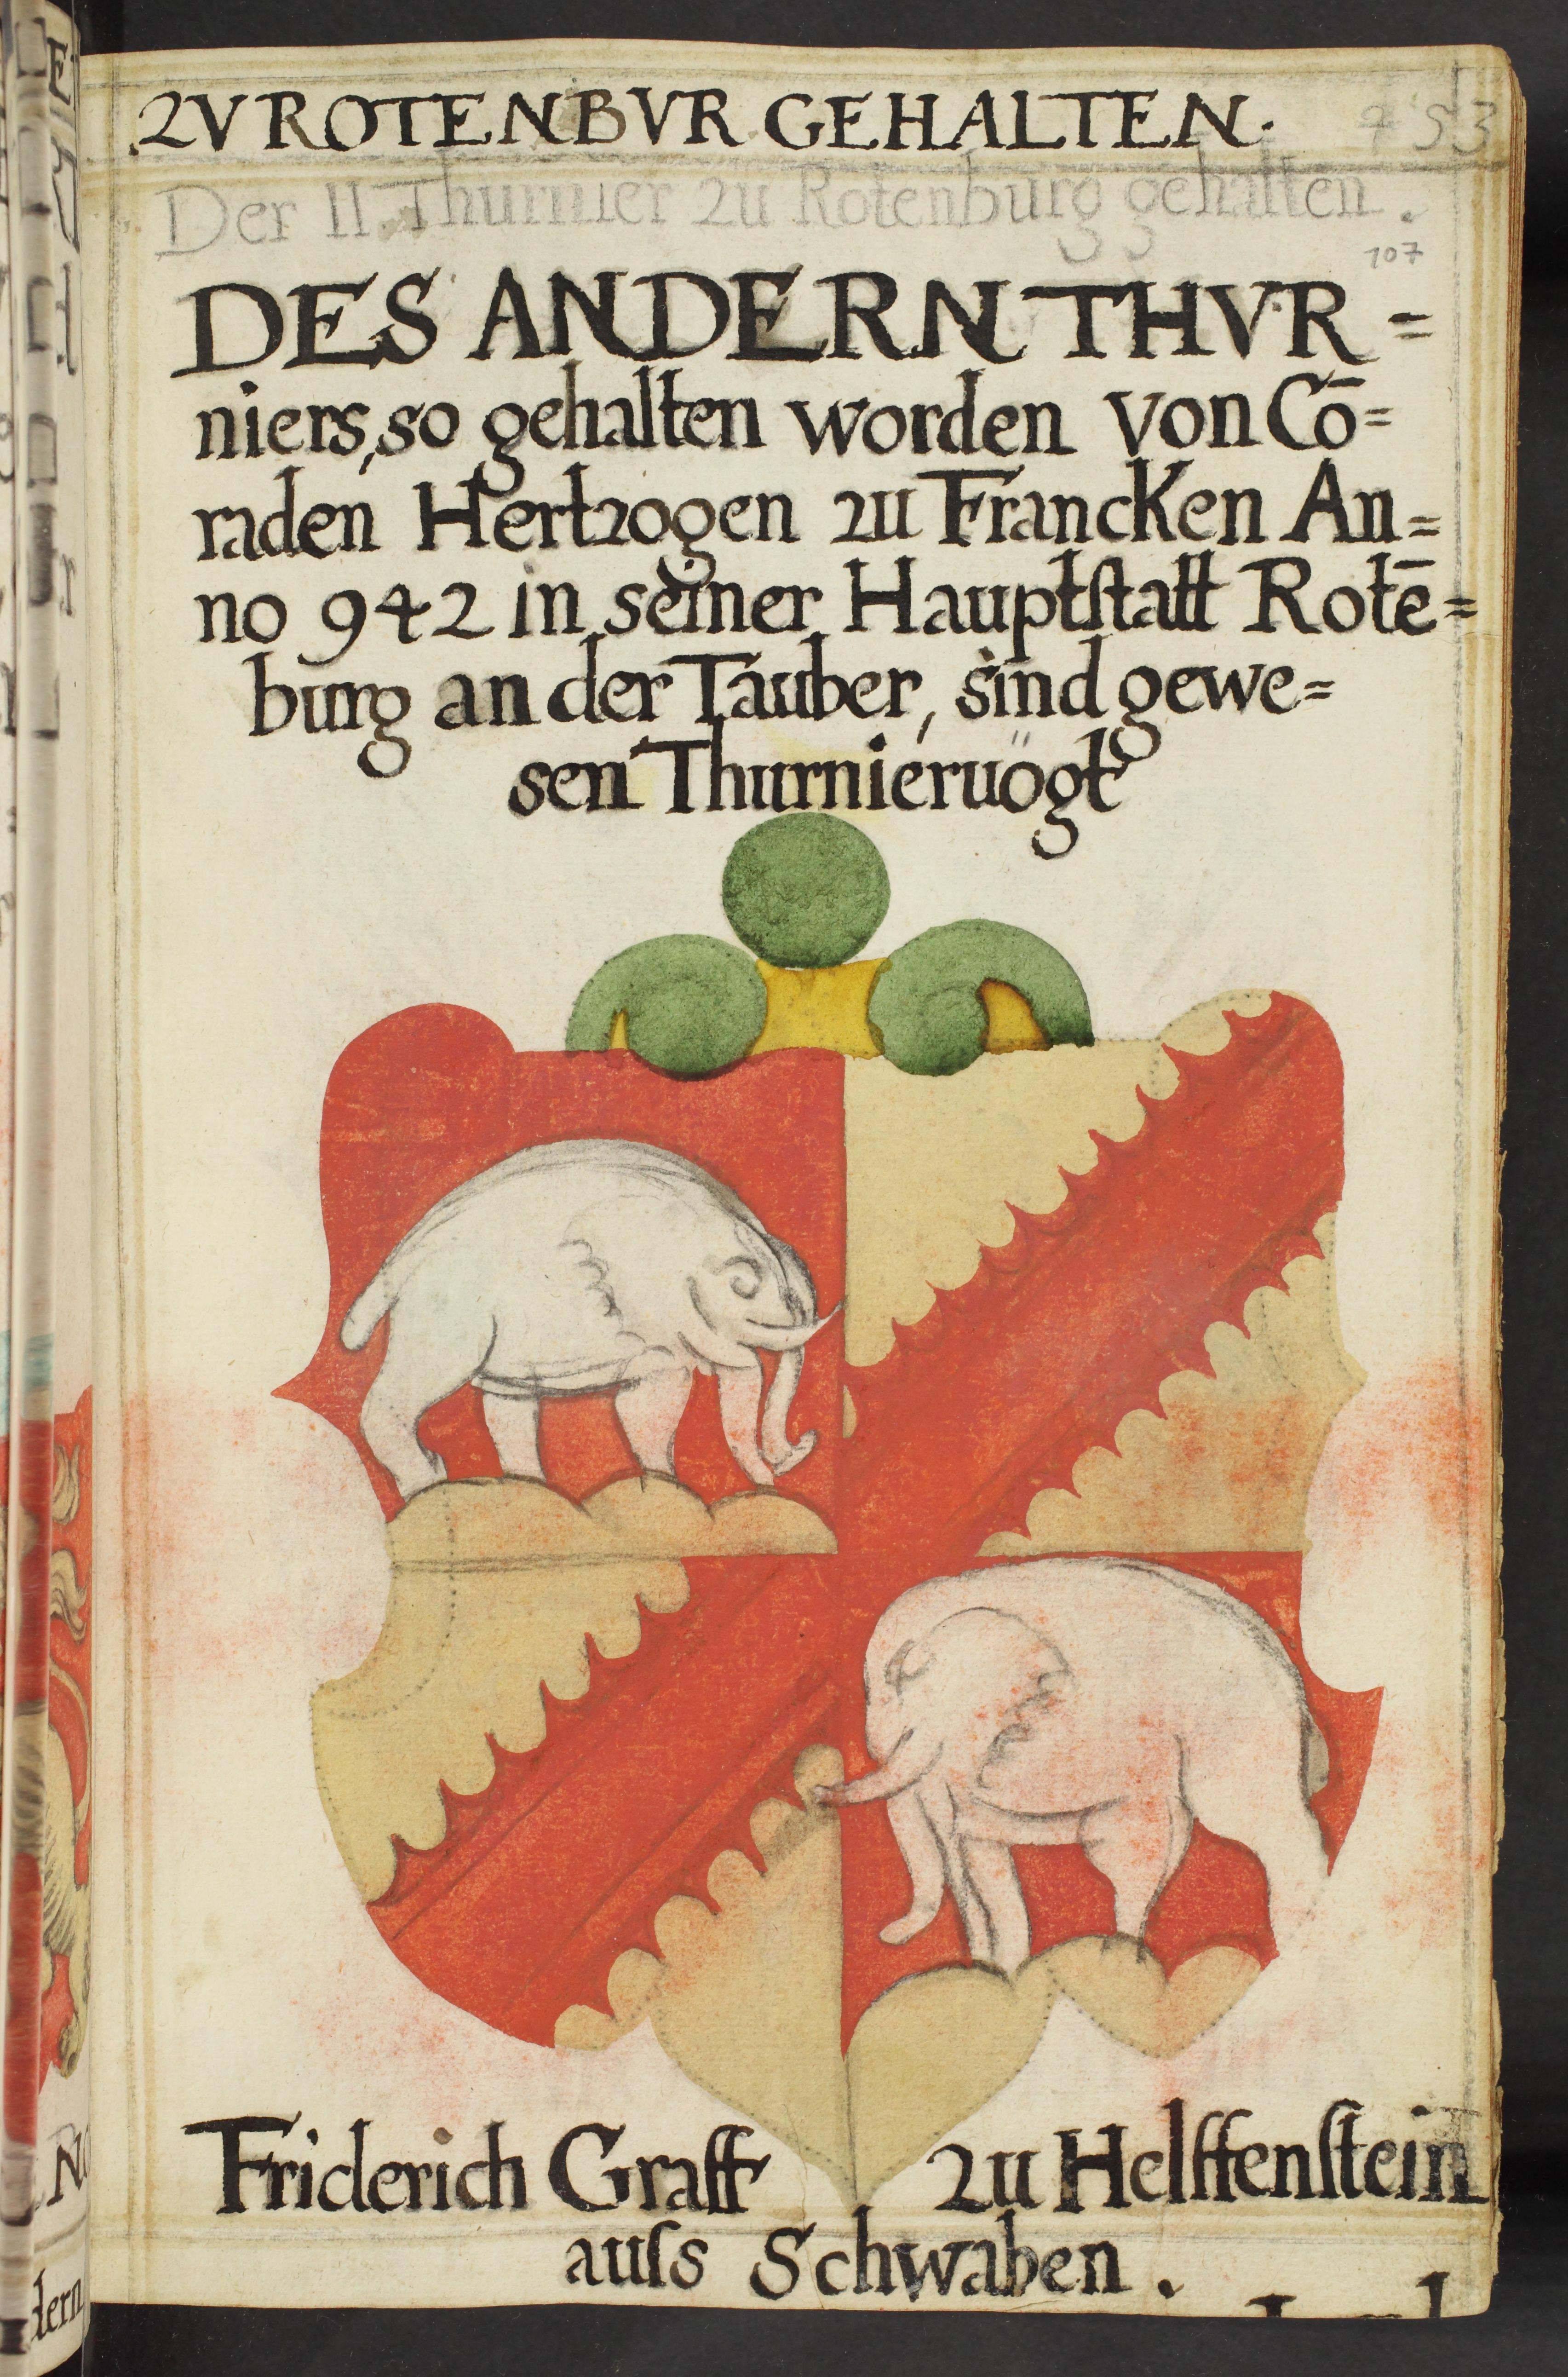 ZV ROTENBVR GEHALTEN.
453
Der II. Thurnier zu Rotenburg gehalten.
107
DES ANDERN THVR=
niers, so gehalten worden von Cō=
raden Hertzogen zu Francken An=
no 942 in seiner Hauptſtatt Rotē=
burg an der Tauber, sind gewe=
sen Thurnieruögt
Friderich Graff zu Helffenſtein
auſs Schwaben.